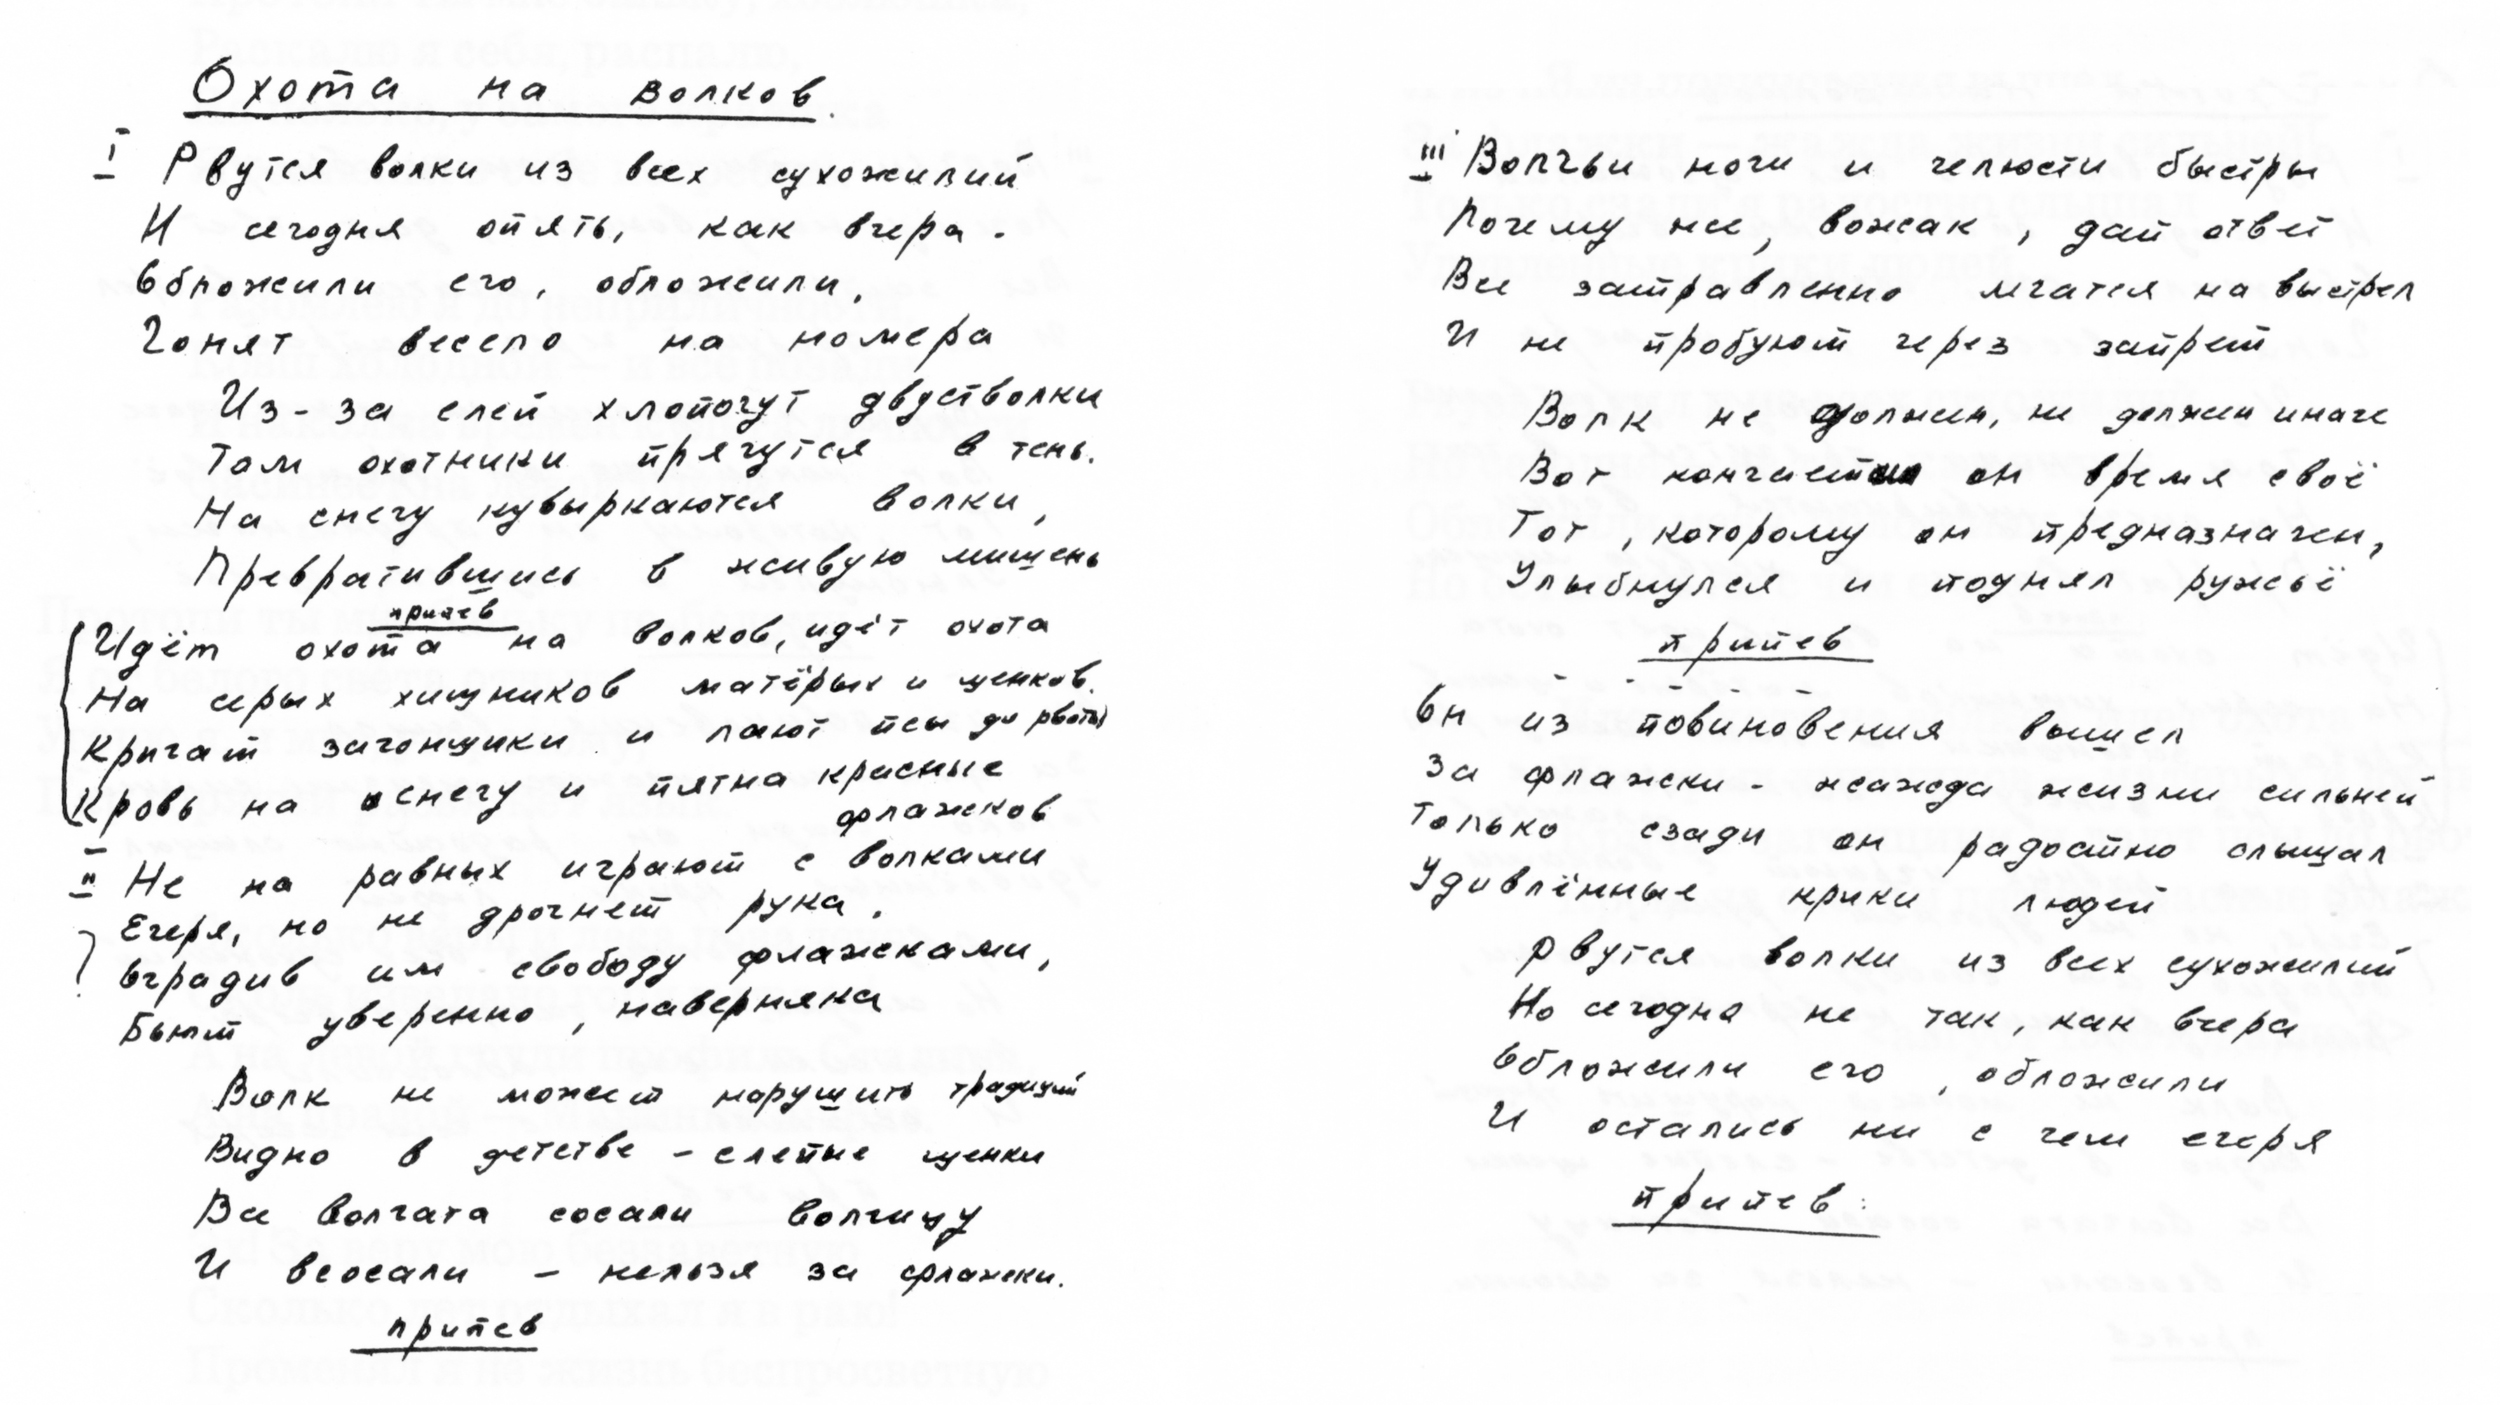 Охота на волков.
I Рвутся волки из всех сухожилий
И сегодня опять, как вчера.
Обложили его, обложили,
Гонят весело на номера
Из-за елей хлопочут двустволки
Там охотники прячутся в тень.
На снегу кувыркаются волки,
Превратившись в живую мишень
припев
Идёт охота на волков, идёт охота
На серых хищников матёрых и щенков.
Кричат загонщики и лают псы до рвоты
Кровь на снегу и пятна красные
флажков
II Не на равных играют с волками
Егеря, но не дрогнет рука.
Оградив им свободу флажками,
Бьют уверенно, наверняка
Волк не может нарушить традиций
Видно в детстве - слепые щенки
Все волчата сосали волчицу
И всосали - нельзя за флажки.
припев
III Волчьи ноги и челюсти быстры
Почему же, вожак, дай ответ
Все затравленно мчатся на выстрел
И не пробуют через запрет
Волк не должен, не должен иначе
Вот кончает он время своё
Тот, которому он предназначен,
Улыбнулся и поднял ружьё
припев
Он из повиновения вышел
За флажки - жажда жизни сильней
Только сзади он радостно слышал
Удивлённые крики людей
Рвутся волки из всех сухожилий
Но сегодня не так, как вчера
Обложили его, обложили
И остались ни с чем егеря
припев: